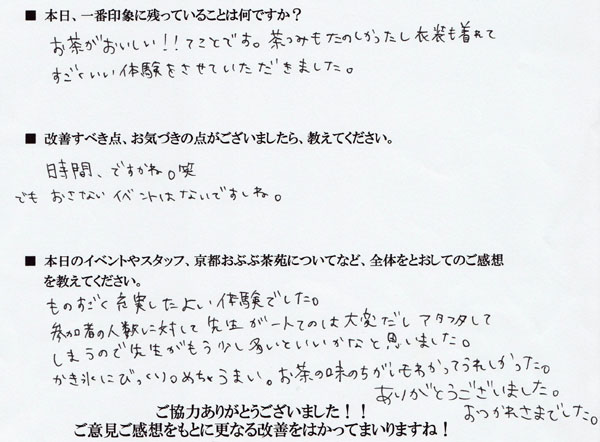 ■ 本日、一番印象に残っていることは何ですか？
お茶がおいしい！！てことです。茶つみもたのしかったし衣装も着れて
すごくいい体験をさせていただきました。
■ 改善すべき点、お気づきの点がございましたら、教えてください。
時間、ですかね。笑
でも おさないイベントはないですしね。
■ 本日のイベントやスタッフ、京都おぶぶ茶苑についてなど、全体をとおしてのご感想
を教えてください。
ものすごく充実したよい体験でした。
参加者の人数に対して先生が一人てのは大変だしアタフタして
しまうので先生がもう少し多いといいかなと思いました。
かき氷にびっくり。めちゃうまい。お茶の味のちがいもわかってうれしかった。
ありがとうございました。
おつかれさまでした。
ご協力ありがとうございました！！
ご意見ご感想をもとに更なる改善をはかってまいりますね！